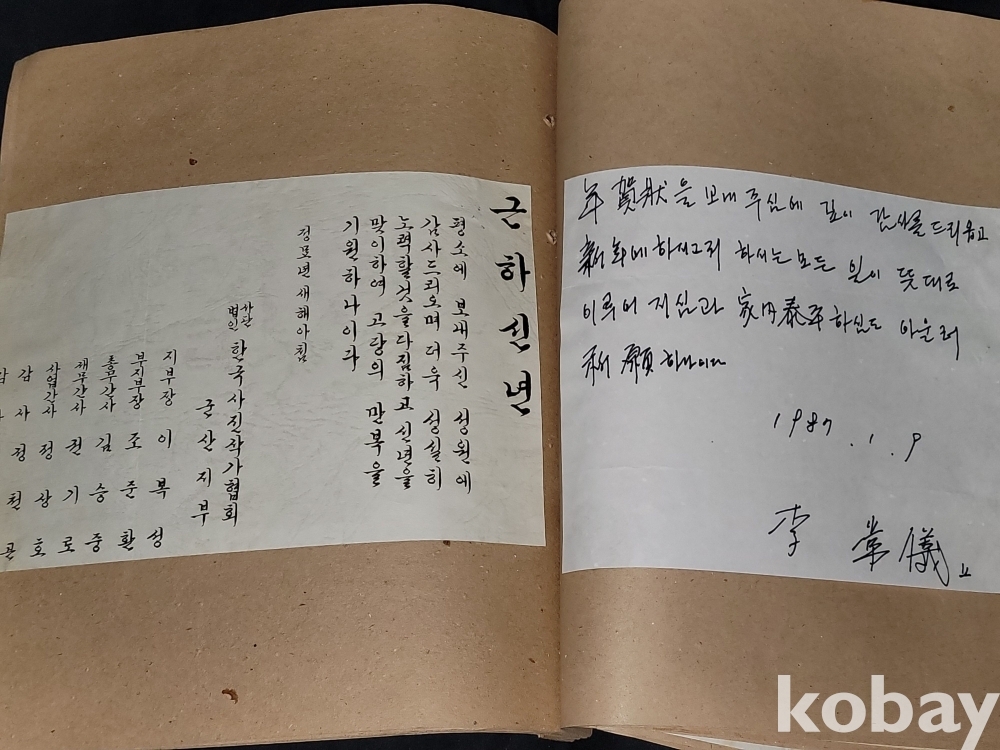 근하신년
평소에 보내주신 성원에
감사드리오며 더욱 성실히
노력할것을 다짐하고 신년을
맞이하여 고당의 만복을
기원하나이다
정묘년 새해아침
사단법인 한국사진작가협회
군산지부
지부장 이복성
부지부장 조준환
총무간사 김승중
재무간사 권기로
사업간사 정상호
감사 정천
年賀狀을 보내 주심에 깊이 감사를 드리옵고
新年에 하시는 모든 일이 뜻대로
이루어 지심과 家內泰平하심도 아울러
祈願하나이다
1987.1.9
李常儀
kobay